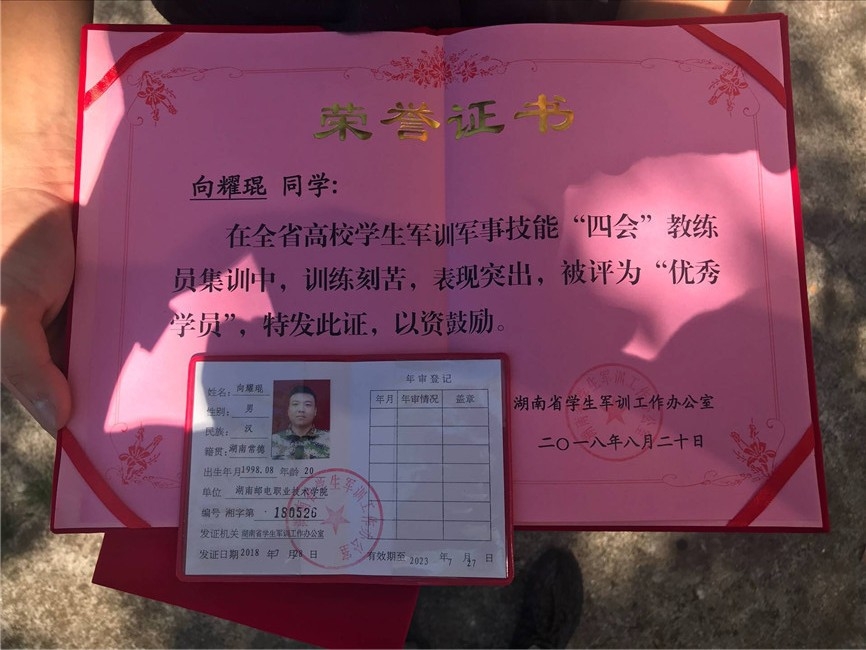 荣誉证书
向耀琨 同学:
在全省高校学生军训军事技能“四会”教练
员集训中，训练刻苦，表现突出，被评为“优秀
学员”，特发此证，以资鼓励。
湖南省学生军训工作办公室
二〇一八年八月二十日
湖南省学生军训工作办公室
姓名: 向耀琨
性别: 男
民族: 汉
籍贯: 湖南常德
出生年月 1998.08 年龄 20
单位 湖南邮电职业技术学院
编号 湘字第 - 180526
发证机关 湖南省学生军训工作办公室
发证日期 2018 年 7 月 28 日
湖南省学生军训工作办公室
年审登记
年月 年审情况 盖章
有效期至 2023 年 7 月 27 日